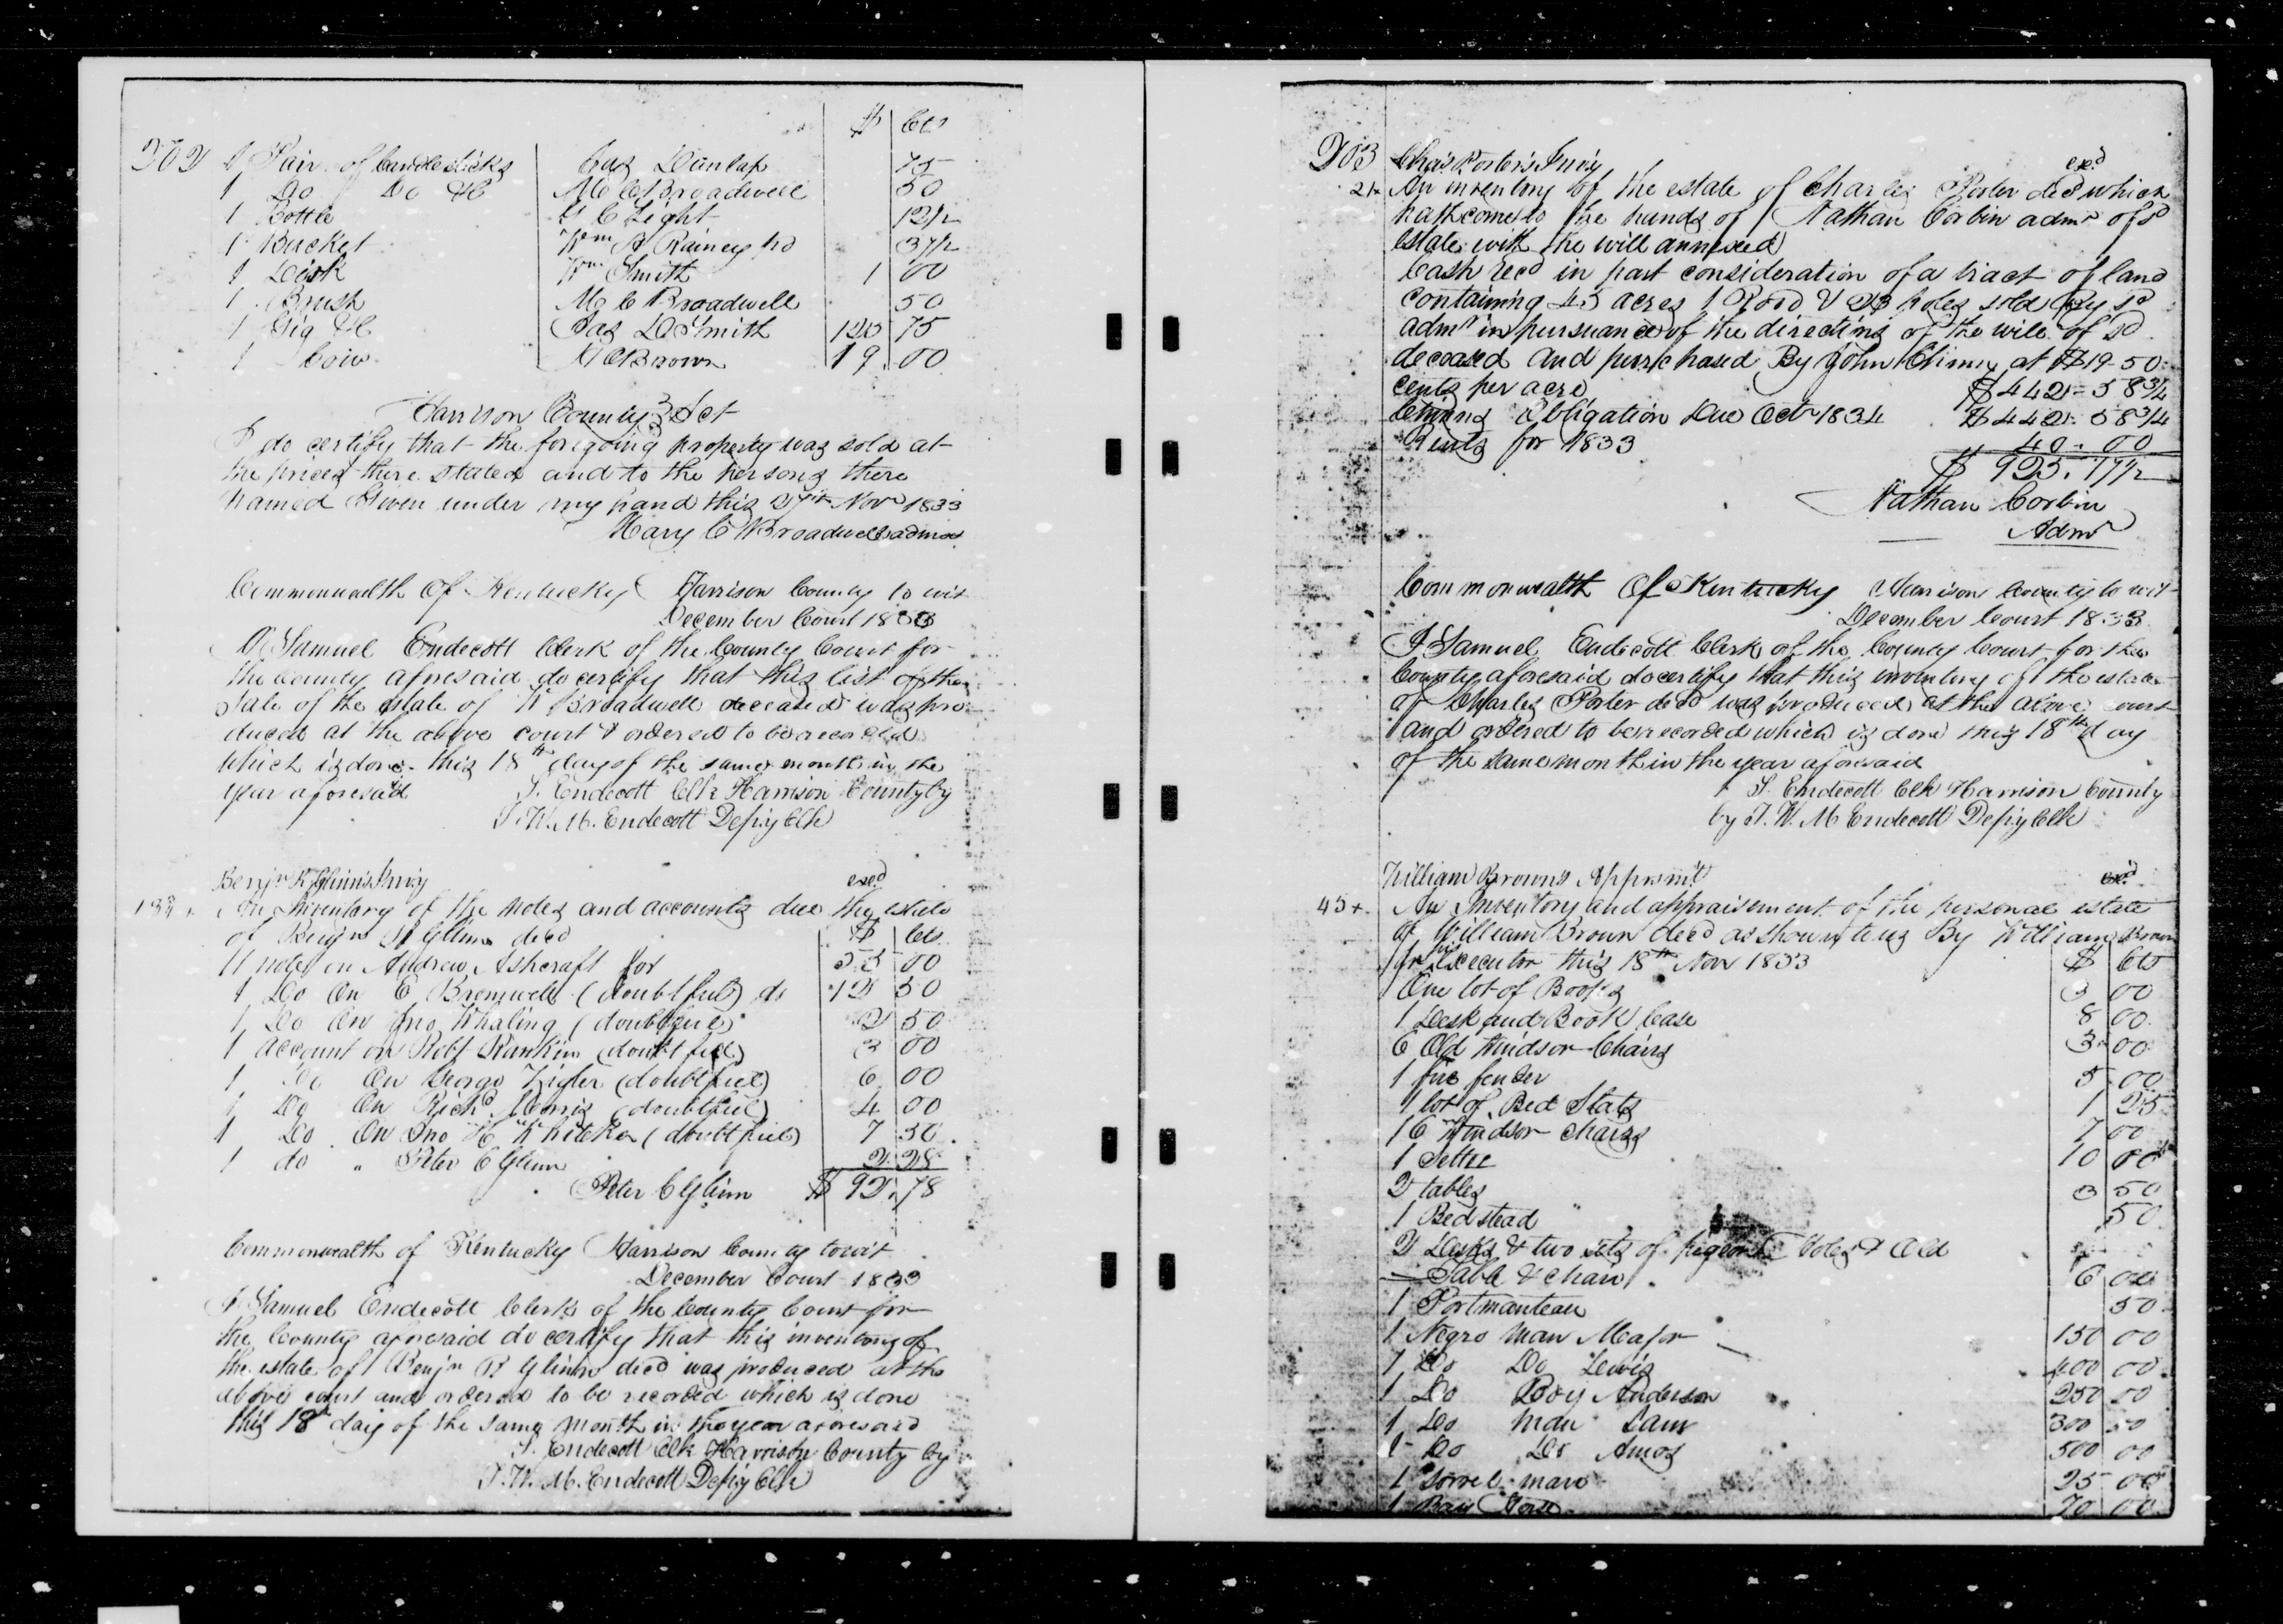 $ Cts
202 1 Pair of Candlesticks Jas Dunlap 75
1 Do Do &C M C Broadwell 50
1 Bottle G C Light 12½
1 Bucket Wm A Rainey 37½
1 Desk Wm Smith 1 00
1 Brush M C Broadwell 50
1 Gig &C Jas D Smith 120 75
1 Cow Brown 19 00
Harrison County Sct
I do certify that the foregoing property was sold at
the prices there stated and to the persons there
named Given under my hand this 27th Novr 1833
Mary C Broadwell admx
Commonwealth Of Kentucky Harrison County to wit
December Court 1833
I Samuel Endecott Clerk of the County Court for
the County aforesaid do certify that this list of the
sale of the estate of Wm Broadwell deceased was pro
duced at the above court & ordered to be recorded
which is done this 18th day of the same month in the
year aforesaid S. Endecott Clk Harrison County by
T. W. M. Endecott Depy Clk
Benjn R Glinn's Invy exd
An Inventory of the notes and accounts due the estate
of Benjn R Glinn decd $ Cts
11 notes on Andrew Ashcraft for 55 00
1 Do On E Bromwell (doubtful) do 12 50
1 Do On Jno Whaling (doubtful) 2 50
1 Account on Robt Rankin (doubtful) 3 00
1 Do On George Zigler (doubtful) 6 00
1 Do On Richd Morris (doubtful) 4 00
1 Do On Jno H Whiteker (doubtful) 7 50
1 do " Peter C Glinn 2 28
Peter C Glinn $ 92.78
Commonwealth of Kentucky Harrison County towit
December Court 1833
I Samuel Endecott Clerk of the County Court for
the County aforesaid do certify that this inventory of
the estate of Benjn R Glinn decd was produced at the
above court and ordered to be recorded which is done
this 18th day of the same month in the year aforesaid
S. Endecott Clk Harrison County by
T. W. M. Endecott Depy Clk
203 Chas Porter's Invy exd
21+ An inventory of the estate of Charles Porter decd which
hath come to the hands of Nathan Corbin admr of sd
estate with the will annexed
Cash recd in part consideration of a tract of land
containing 45 acres 1 Rood & 23 poles sold by sd
admr in pursuance of the directions of the will of sd
deceased and purchased By John at $19-50
cents per acre $442-58¾
Obligation Due Octr 1834 $442.58¾
Rents for 1833 40-00
$925.17½
Nathan Corbin
Admr
Commonwealth Of Kentucky Harrison County to wit
December Court 1833
I Samuel Endecott Clerk of the County Court for the
County aforesaid do certify that this inventory of the estate
of Charles Porter decd was produced at the above court
and ordered to be recorded which is done this 18th day
of the same month in the year aforesaid
S. Endecott Clk Harrison County
by T. W. M Endecott Depy Clk
William Browns Appmt exd
45+ An Inventory and appraisement of the personal estate
of William Brown decd as shown to us By William Brown
Jr his Executor this 18th Nov 1833 $ Cts
One lot of Books 3 00
1 Desk and Book Case 8 00
6 Old Windsor Chairs 3 00
1 fire fender 5 00
1 lot of Bed Slats 1 25
16 Windsor chairs 7 00
1 Settee 10 00
2 tables 3 50
1 Bedstead 50
2 Desks & two sets of pigeon holes & Old
Table & chair 6 00
1 Portmanteau 50
1 Negro man Major 150 00
1 Do Do Lewis 400 00
1 Do Boy Anderson 250 00
1 Do Man Sam 300 00
1 Do Do Amos 500 00
1 Sorrel mare 25 00
1 Bay Horse 70 00